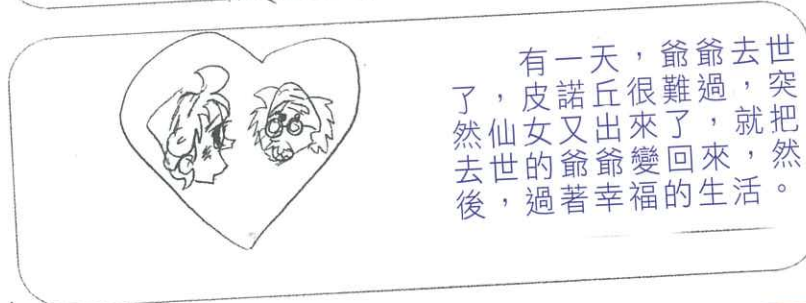 有一天，爺爺去世
了，皮諾丘很難過，突
然仙女又出來了，就把
去世的爺爺變回來，然
後，過著幸福的生活。